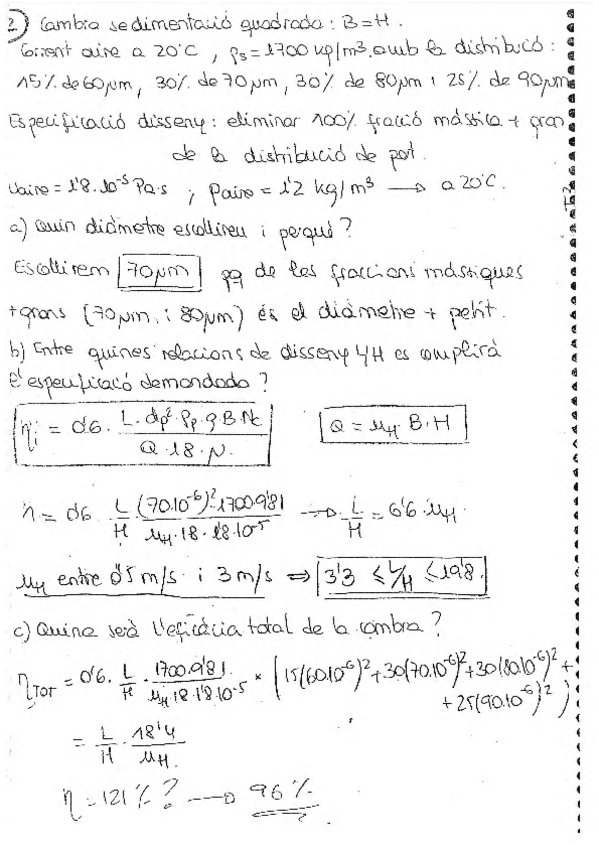 2) Cambra sedimentació quadrada: B=H.
Corrent aire a 20°C, ρs=1700 kg/m³ amb la distribució:
15% de 60μm, 30% de 70μm, 30% de 80μm i 25% de 90μm
Especificació disseny: eliminar 100% fracció màssica + gran
de la distribució de part.
μaire = 1'8·10⁻⁵ Pa·s ; ρaire = 1'2 kg/m³ → a 20°C.
a) Quin diàmetre escollireu i perquè?
Escollirem 70μm pq de les fraccions màssiques
+ grans (70μm i 80μm) és el diàmetre + petit.
b) Entre quines relacions de disseny L/H es complirà
l'especificació demandada?
ηi = 0'6 · L·dp²·ρp·g·B·Nc / Q·18·μ Q = μH·B·H
η = 0'6 · L/H · (70·10⁻⁶)²·1700·9'81 / μH·18·1'8·10⁻⁵ → L/H = 6'6·μH
μH entre 0'5 m/s i 3 m/s ⇒ 3'3 ≤ L/H ≤ 19'8
c) Quina serà l'eficàcia total de la cambra?
ηTOT = 0'6 · L/H · 1700·9'81 / μH·18·1'8·10⁻⁵ × (15(60·10⁻⁶)²+30(70·10⁻⁶)²+30(80·10⁻⁶)²+
+25(90·10⁻⁶)²)
= L/H · 18'4 / μH
η = 121%? → 96%